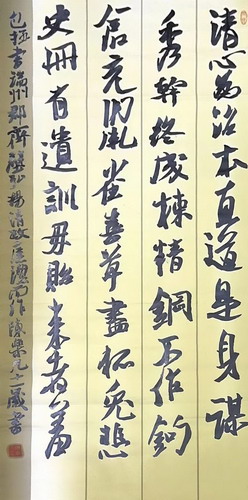 清心為治本直道是身謀
秀幹終成棟精鋼不作鉤
倉充鼠雀喜草盡狐兔悲
史冊有遺訓毋貽來者羞
包拯書端州郡齋壁 揚清政 而作陳 歲書